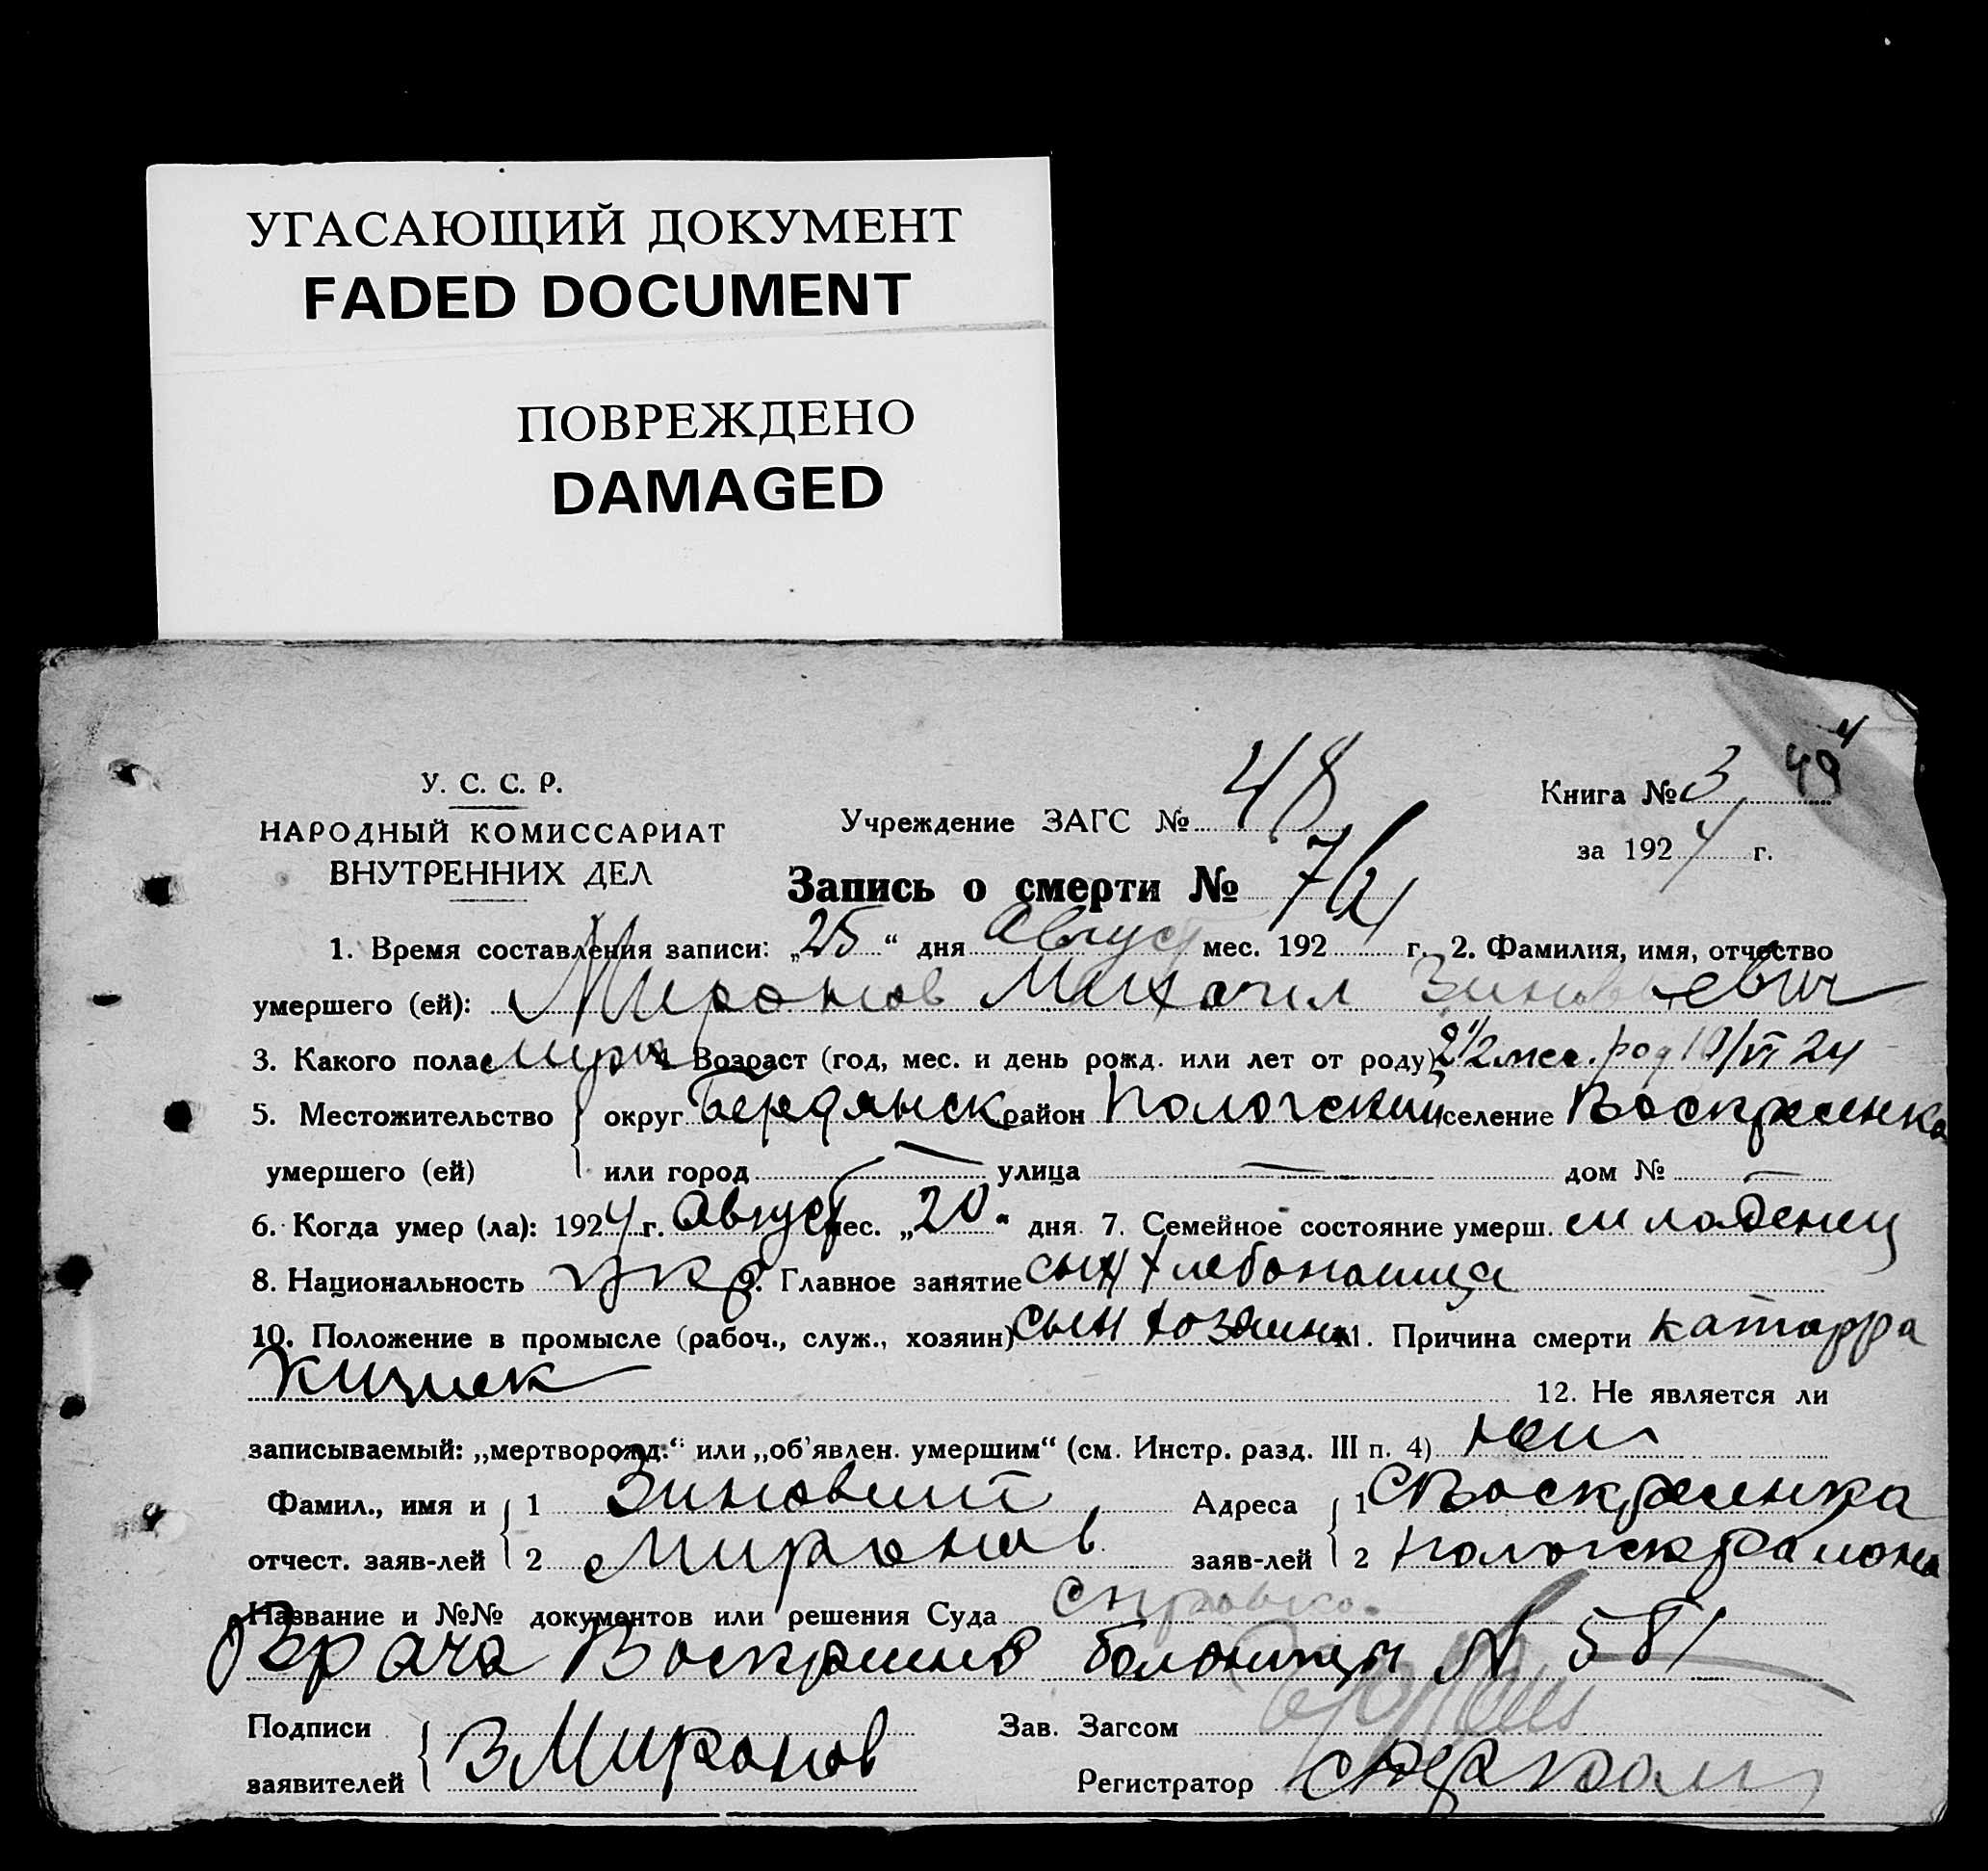 УГАСАЮЩИЙ ДОКУМЕНТ
FADED DOCUMENT
ПОВРЕЖДЕНО
DAMAGED
49
У. С. С. Р.
НАРОДНЫЙ КОМИССАРИАТ
ВНУТРЕННИХ ДЕЛ
Учреждение ЗАГС № 48
Книга № 3
за 1924 г.
Запись о смерти №
1. Время составления записи: „25“ дня Август мес. 1924 г. 2. Фамилия, имя, отчество
умершего (ей): Миронов Михаил Зиновьевич
3. Какого пола 4. Возраст (год, мес. и день рожд. или лет от роду) 2 1/2 мес. род 10/VI 24
5. Местожительство округ Бердянск район Пологский селение Воскресенка
умершего (ей) или город — улица — дом № —
6. Когда умер (ла): 1924 г. Август мес. „20“ дня 7. Семейное состояние умерш. младенец
8. Национальность укр 9. Главное занятие сын хлебопашца
10. Положение в промысле (рабоч., служ., хозяин) сын хозяина 11. Причина смерти катарра
кишек 12. Не является ли
записываемый: „мертворожд.“ или „об'явлен. умершим“ (см. Инстр. разд. III п. 4) нет
Фамил., имя и 1 Зиновий Адреса 1 с Воскресенка
отчест. заяв-лей 2 Миронов заяв-лей 2 Пологск района
Название и №№ документов или решения Суда справка
Врача Воскресенс больницы № 581
Подписи Зав. Загсом
заявителей В Миронов Регистратор